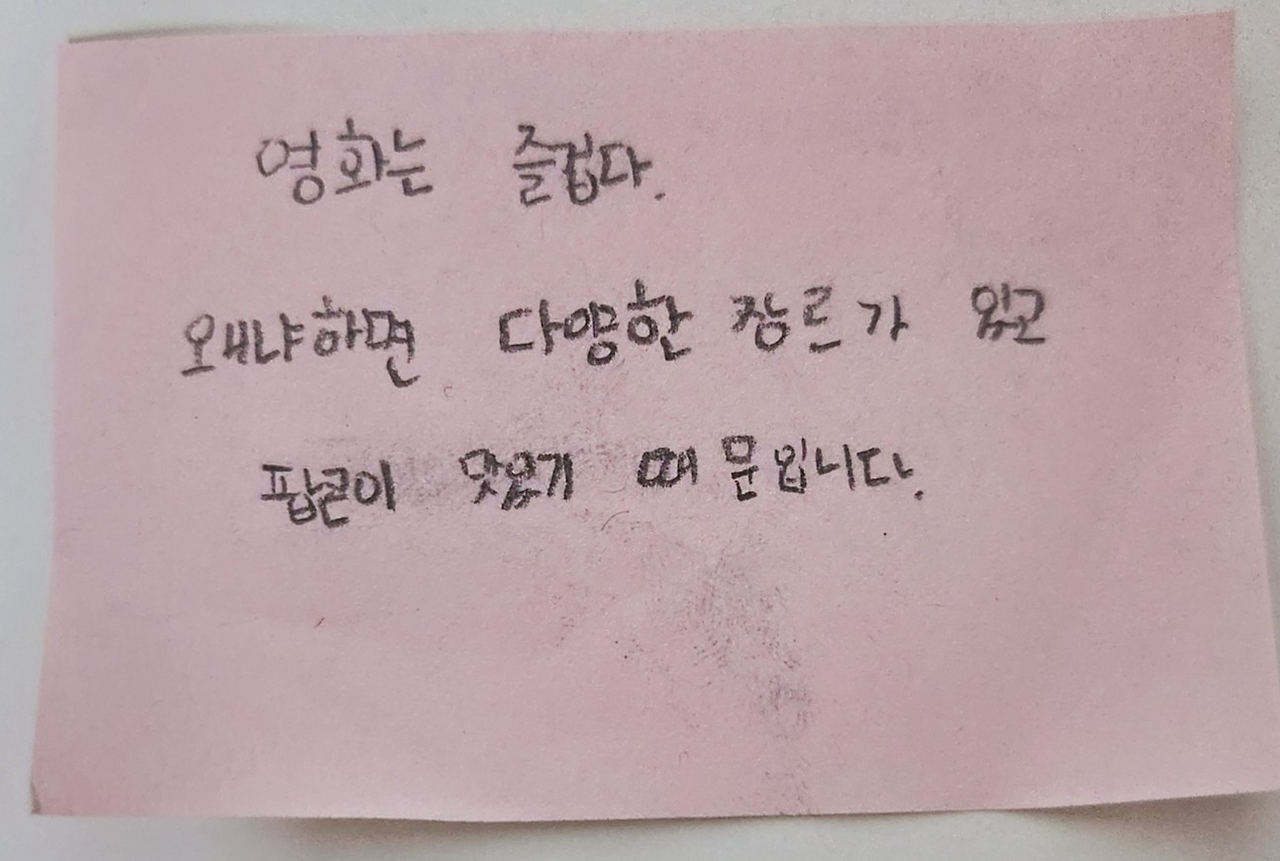 영화는 즐겁다.
왜냐하면 다양한 장르가 있고
팝콘이 맛있기 때문입니다.